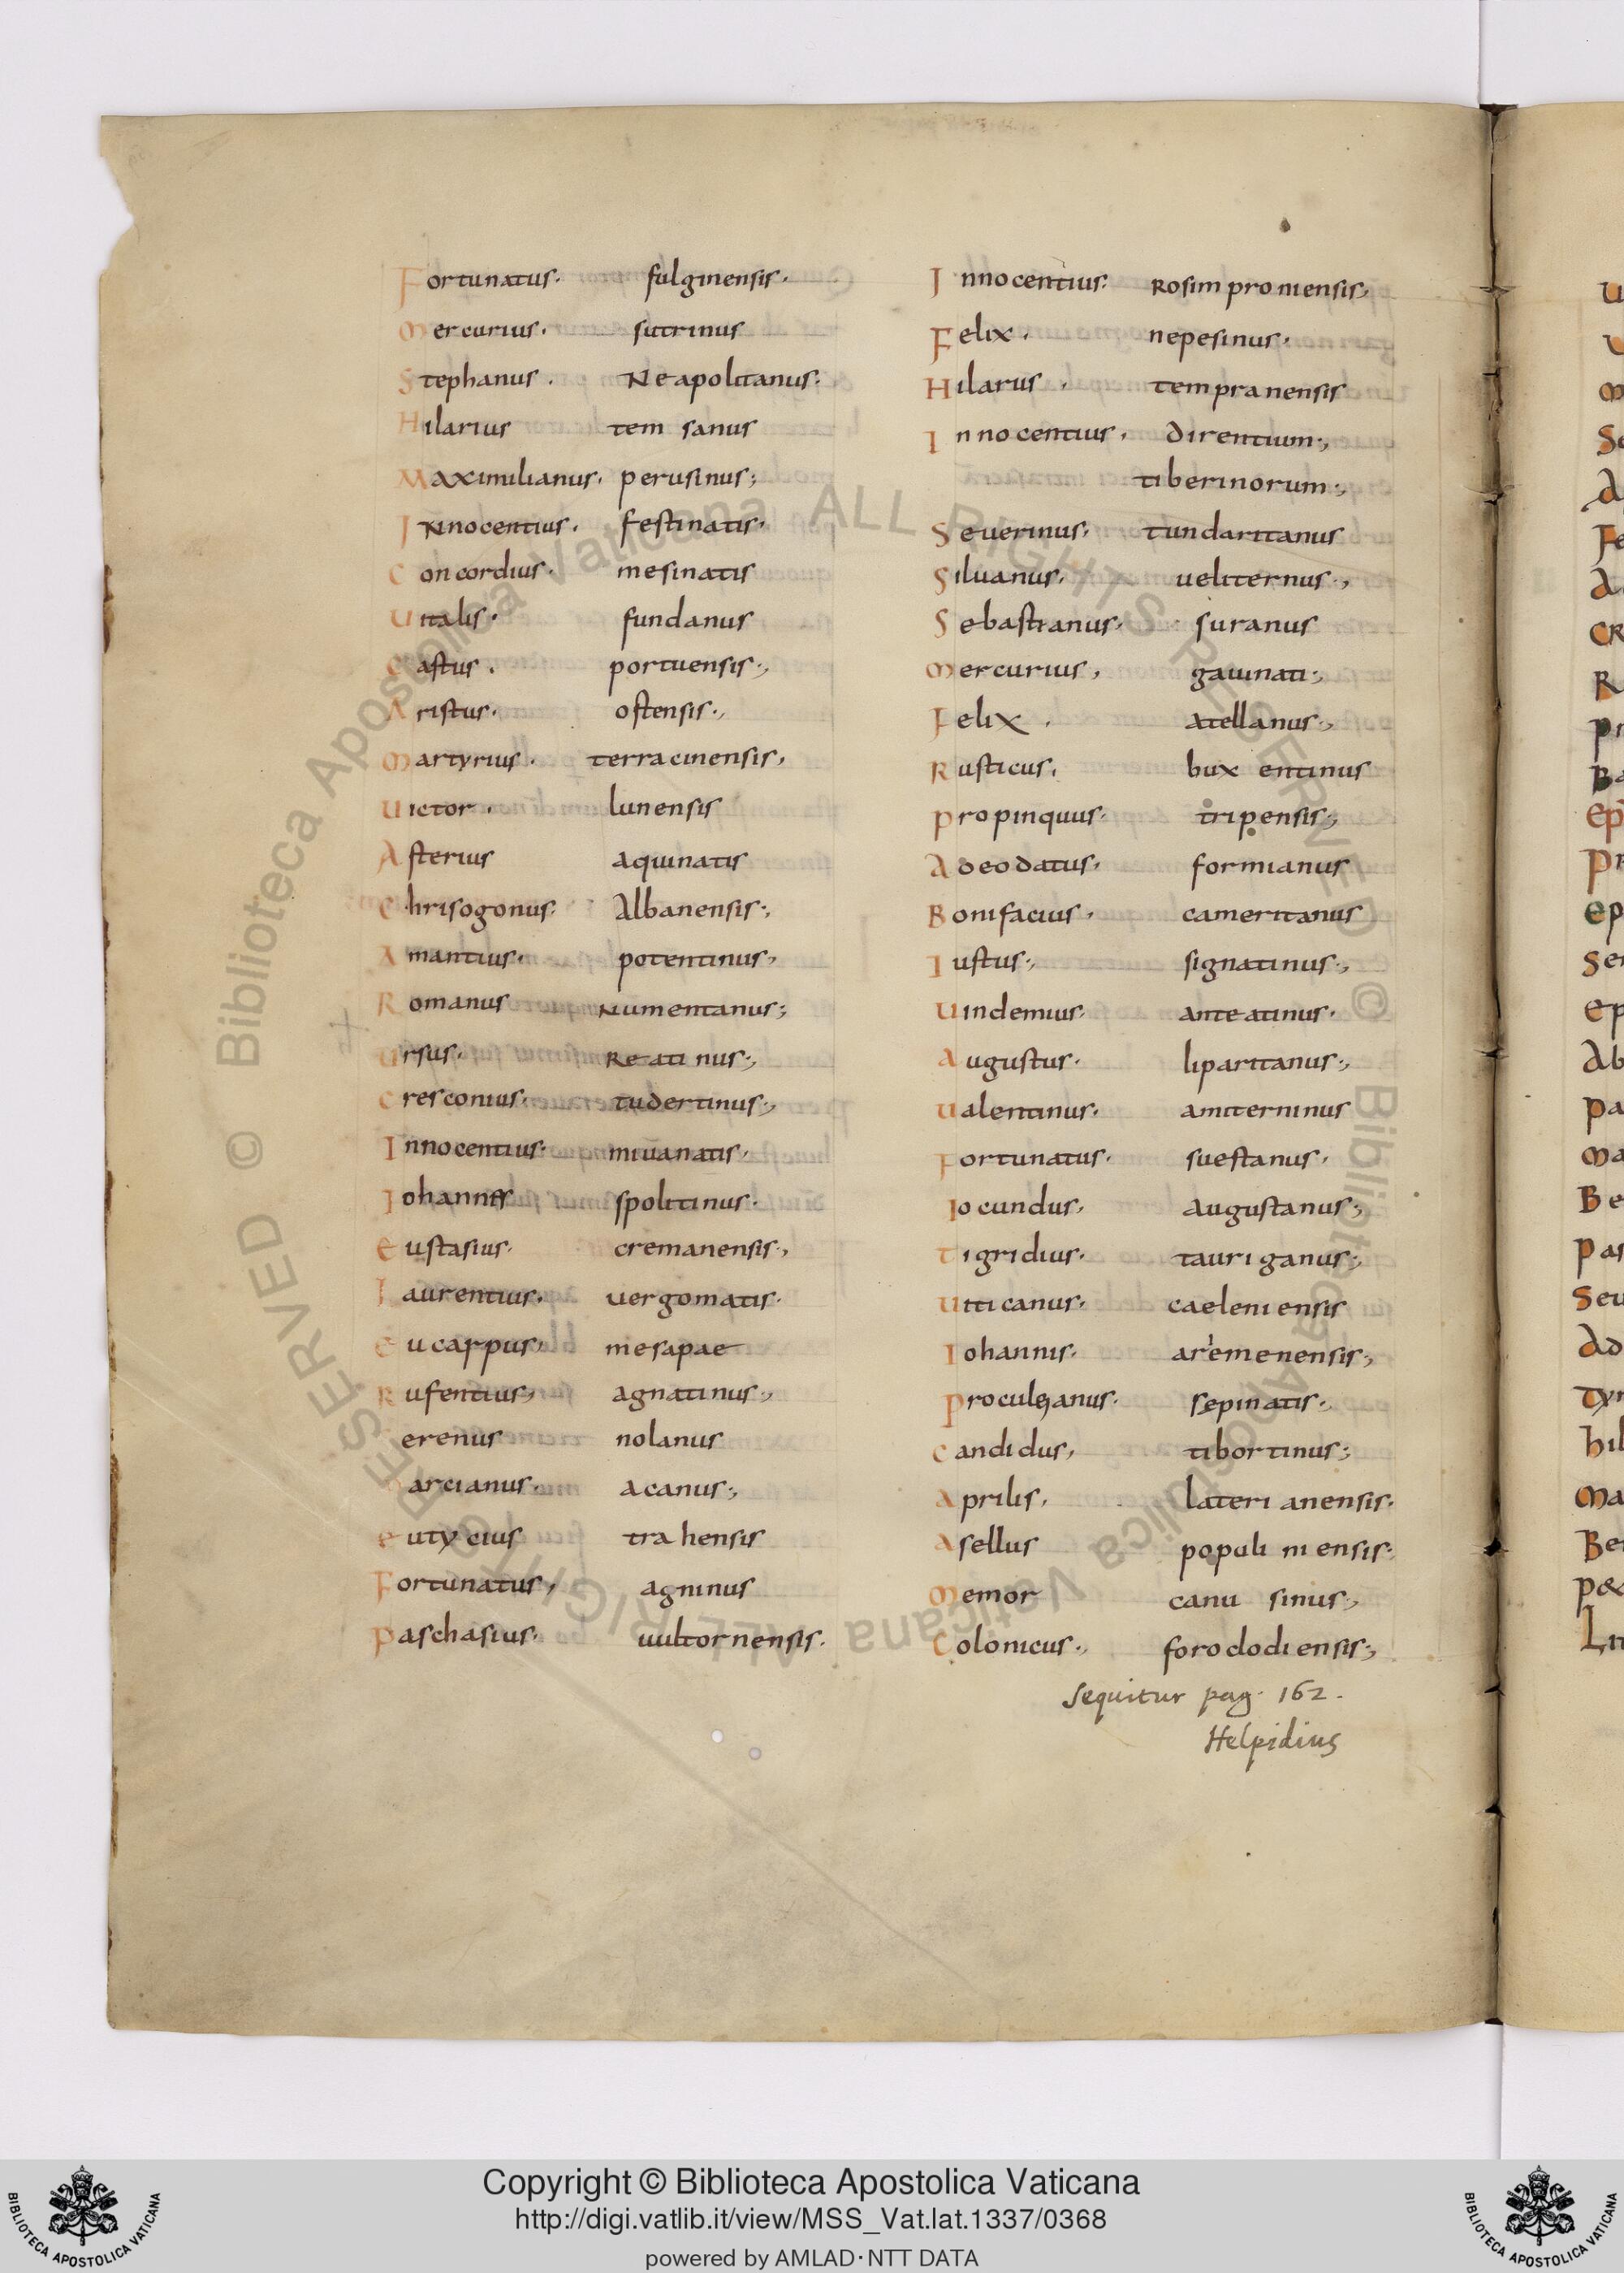 Fortunatus. fulginensis.
Mercurius. sutrinus
Stephanus. Neapolitanus.
Hilarius tem sanus
Maximilianus. perusinus;
INnocentius. festinatis.
Concordius. mesinatis
Uitalis. fundanus
Castus. portuensis.,
Aristus. ostensis.,
Martyrius. terracinensis,
Uictor. lunensis
Asterius aquinatis
Chrisogonus. Albanensis.,
Amantius. potentinus,
Romanus Numentanus;
Ursus. Reati nus.,
Cresconius. tudertinus.,
Innocentius. miuanatis,
Iohannes spolitinus.
Eustasius. cremanensis.,
Laurentius. uergomatis.
Eucarpus. mesapae
Rufentius, agnatinus.,
Serenus nolanus
Marcianus. acanus;
Euty cius tra hensis
Fortunatus, agninus
Paschasius. uultornensis.
Innocentius: Rosim pro niensis,
Felix. nepesinus.
Hilarus. tempranensis
Innocentius, direntium.,
tiberinorum.,
Seuerinus. tundaritanus
Siluanus. ueliternus.,
Sebastianus. suranus
Mercurius, gauinati.,
Felix. atellanus.,
Rusticus, bux entinus
Propinquus. tripensis;
Adeodatus. formianus
Bonifacius, cameritanus
Iustus., signatinus.,
Uindemius. anteatinus.
Augustus. liparitanus.,
Ualentinus. amiterninus
Fortunatus. suestanus.
Iocundus. augustanus;
Tigridius. tauri ganus;
Uiticanus. caeleni ensis
Iohannis. aremenensis;
Proculeianus. sepinatis.,
Candidus, tibortinus;
Aprilis. lateri anensis.
Asellus populi ni ensis.
Memor canu sinus.,
Colonicus., forodo di ensis;
Sequitur pag. 162.
Helpidius
© Biblioteca Apostolica Vaticana ALL RIGHTS RESERVED
© Biblioteca Apostolica Vaticana ALL RIGHTS RESERVED
Copyright © Biblioteca Apostolica Vaticana
http://digi.vatlib.it/view/MSS_Vat.lat.1337/0368
powered by AMLAD·NTT DATA
BIBLIOTECA APOSTOLICA VATICANA
BIBLIOTECA APOSTOLICA VATICANA